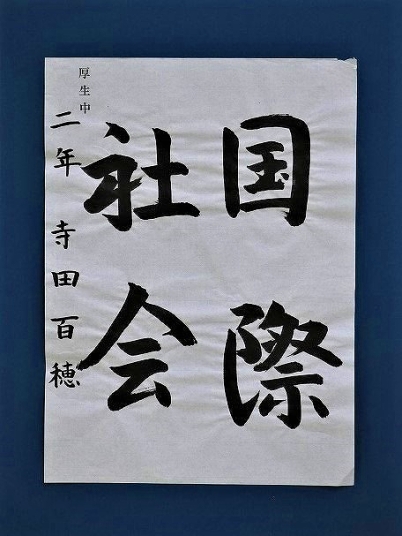 国際
社会
厚生中
二年 寺田百穂